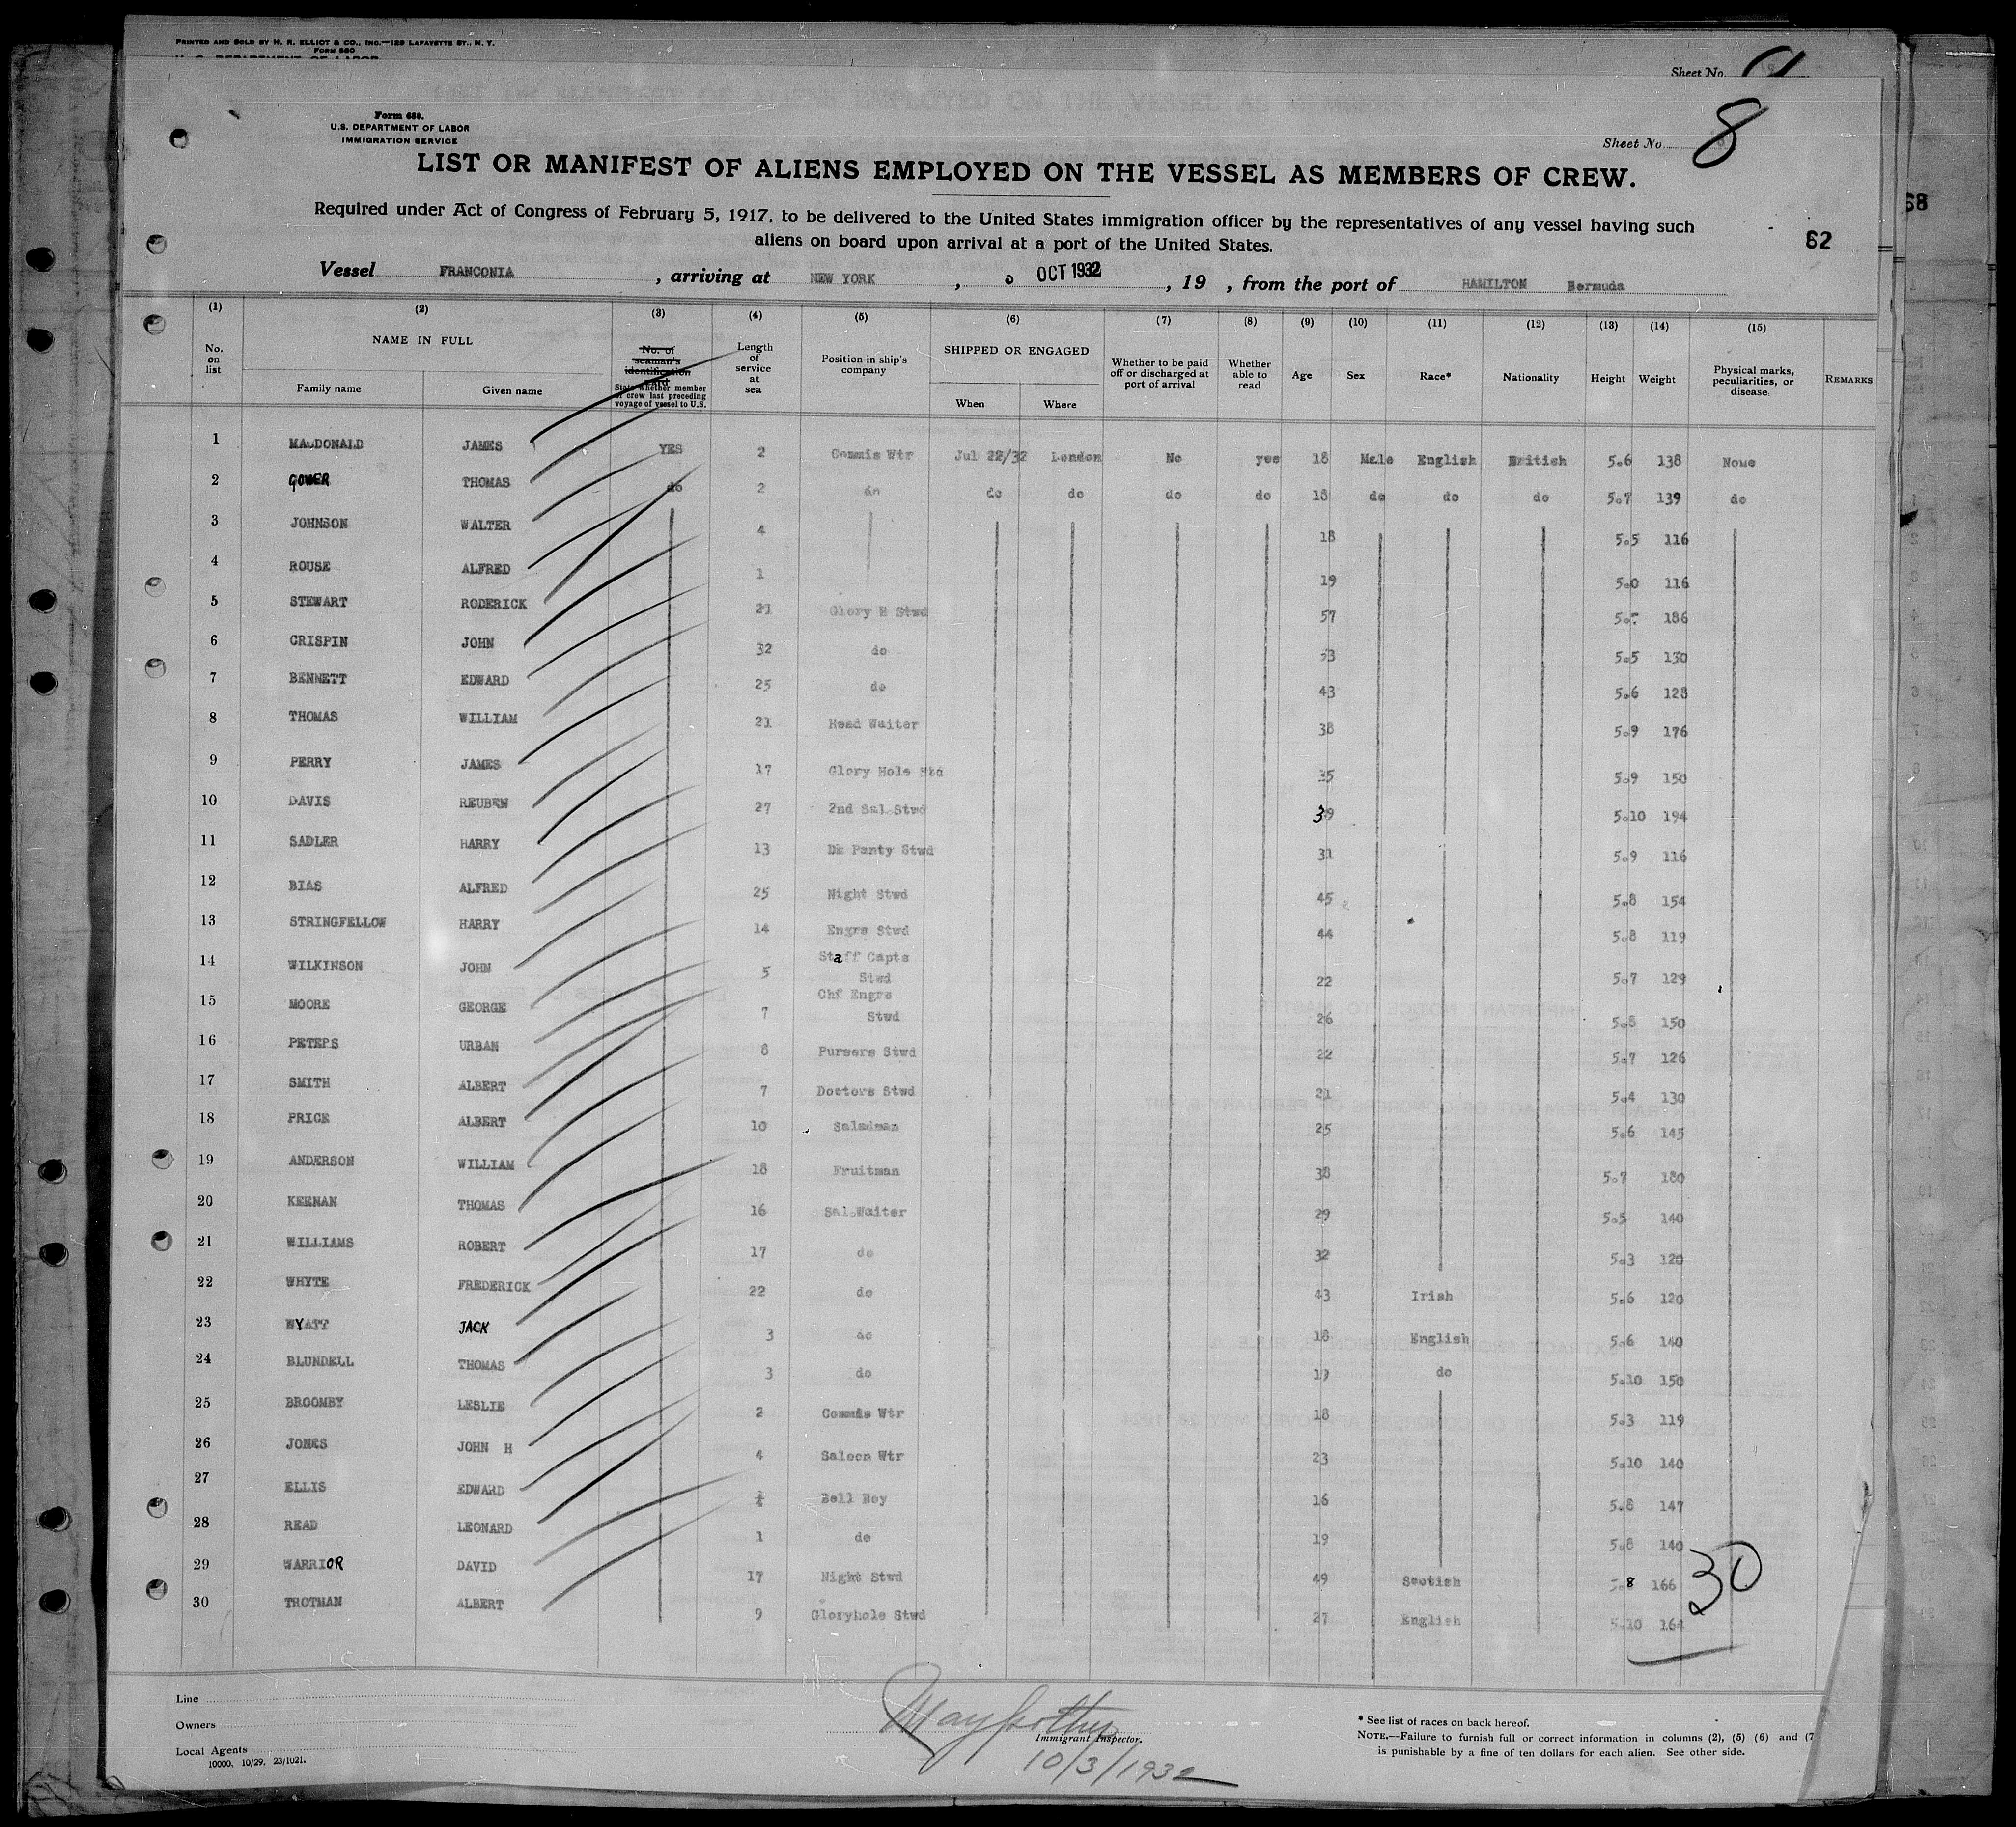 PRINTED AND SOLD BY H. R. ELLIOT & CO., INC.—129 LAFAYETTE ST., N. Y.
FORM 680
U. S. DEPARTMENT OF LABOR
Sheet No.
Form 680.
U.S. DEPARTMENT OF LABOR
IMMIGRATION SERVICE
Sheet No. 8
LIST OR MANIFEST OF ALIENS EMPLOYED ON THE VESSEL AS MEMBERS OF CREW.
Required under Act of Congress of February 5, 1917, to be delivered to the United States immigration officer by the representatives of any vessel having such
aliens on board upon arrival at a port of the United States.
62
68
Vessel FRANCONIA , arriving at NEW YORK , OCT 1932 , 19 , from the port of HAMILTON Bermuda
(1) (2) (3) (4) (5) (6) (7) (8) (9) (10) (11) (12) (13) (14) (15)
No. on list
NAME IN FULL
Family name Given name
No. of seaman's identification card
State whether member of crew last preceding voyage of vessel to U.S.
Length of service at sea
Position in ship's company
SHIPPED OR ENGAGED
When Where
Whether to be paid off or discharged at port of arrival
Whether able to read
Age Sex Race* Nationality Height Weight
Physical marks, peculiarities, or disease
REMARKS
1 MAcDONALD JAMES YES 2 Commis Wtr Jul 22/32 London No yes 18 Male English British 5.6 138 None
2 GOWER THOMAS do 2 do do do do do 18 do do do 5.7 139 do
3 JOHNSON WALTER 4 18 5.5 116
4 ROUSE ALFRED 1 19 5.0 116
5 STEWART RODERICK 21 Glory H Stwd 57 186
6 CRISPIN JOHN 32 do 53 5.5 130
7 BENNETT EDWARD 25 do 43 5.6 128
8 THOMAS WILLIAM 21 Head Waiter 38 5.9 176
9 PERRY JAMES 17 Glory Hole Std 35 5.9 150
10 DAVIS REUBEN 27 2nd Sal.Stwd 39 5.10 194
11 SADLER HARRY 13 Dk Panty Stwd 31 5.9 116
12 BIAS ALFRED 25 Night Stwd 45 5.8 154
13 STRINGFELLOW HARRY 14 Engrs Stwd 44 5.8 119
14 WILKINSON JOHN 5 Staff Capts Stwd 22 5.7 129
15 MOORE GEORGE 7 Chf Engrs Stwd 26 5.8 150
16 PETERS URBAN 8 Pursers Stwd 22 5.7 126
17 SMITH ALBERT 7 Doctors Stwd 21 5.4 130
18 PRICE ALBERT 10 Saladman 25 5.6 145
19 ANDERSON WILLIAM 18 Fruitman 38 5.7 180
20 KEENAN THOMAS 16 Sal.Waiter 29 5.5 140
21 WILLIAMS ROBERT 17 do 32 5.3 120
22 WHYTE FREDERICK 22 do 43 Irish 5.6 120
23 WYATT JACK 3 do 18 English 5.6 140
24 BLUNDELL THOMAS 3 do 19 do 5.10 150
25 BROOMBY LESLIE 2 Commis Wtr 18 5.3 119
26 JONES JOHN H 4 Saloon Wtr 23 5.10 140
27 ELLIS EDWARD Bell Boy 16 5.8 147
28 READ LEONARD 1 do 19 5.8 140
29 WARRIOR DAVID 17 Night Stwd 49 Scotish 5.8 166
30 TROTMAN ALBERT 9 Gloryhole Stwd 27 English 5.10 164
30
Line
Owners
Local Agents
10000. 10/29. 23/1021.
Immigrant Inspector.
10/3/1932
* See list of races on back hereof.
NOTE.—Failure to furnish full or correct information in columns (2), (5) (6) and (7
is punishable by a fine of ten dollars for each alien. See other side.